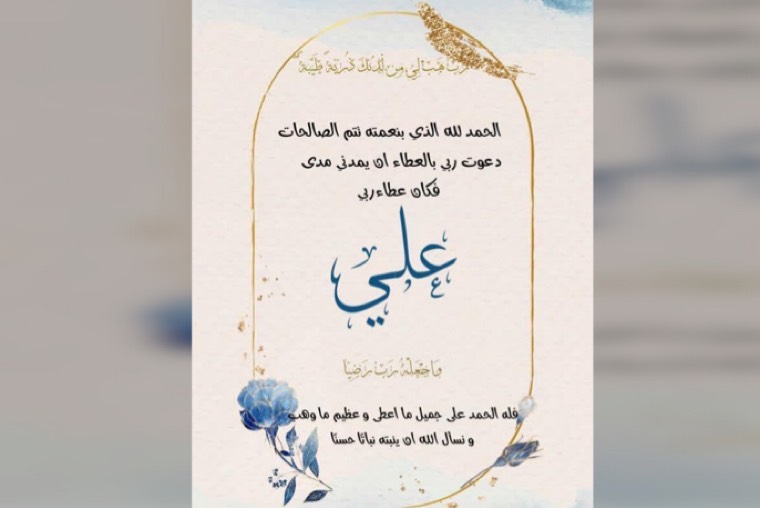 رَبِّ هَبْ لِي مِن لَّدُنْكَ ذُرِّيَّةً طَيِّبَةً
الحمد لله الذي بنعمته تتم الصالحات
دعوت ربي بالعطاء ان يمدني مدى
فكان عطاء ربي
علي
وَاجْعَلْهُ رَبِّ رَضِيًّا
فله الحمد على جميل ما اعطى و عظيم ما وهب
و نسال الله ان ينبته نباتًا حسنًا